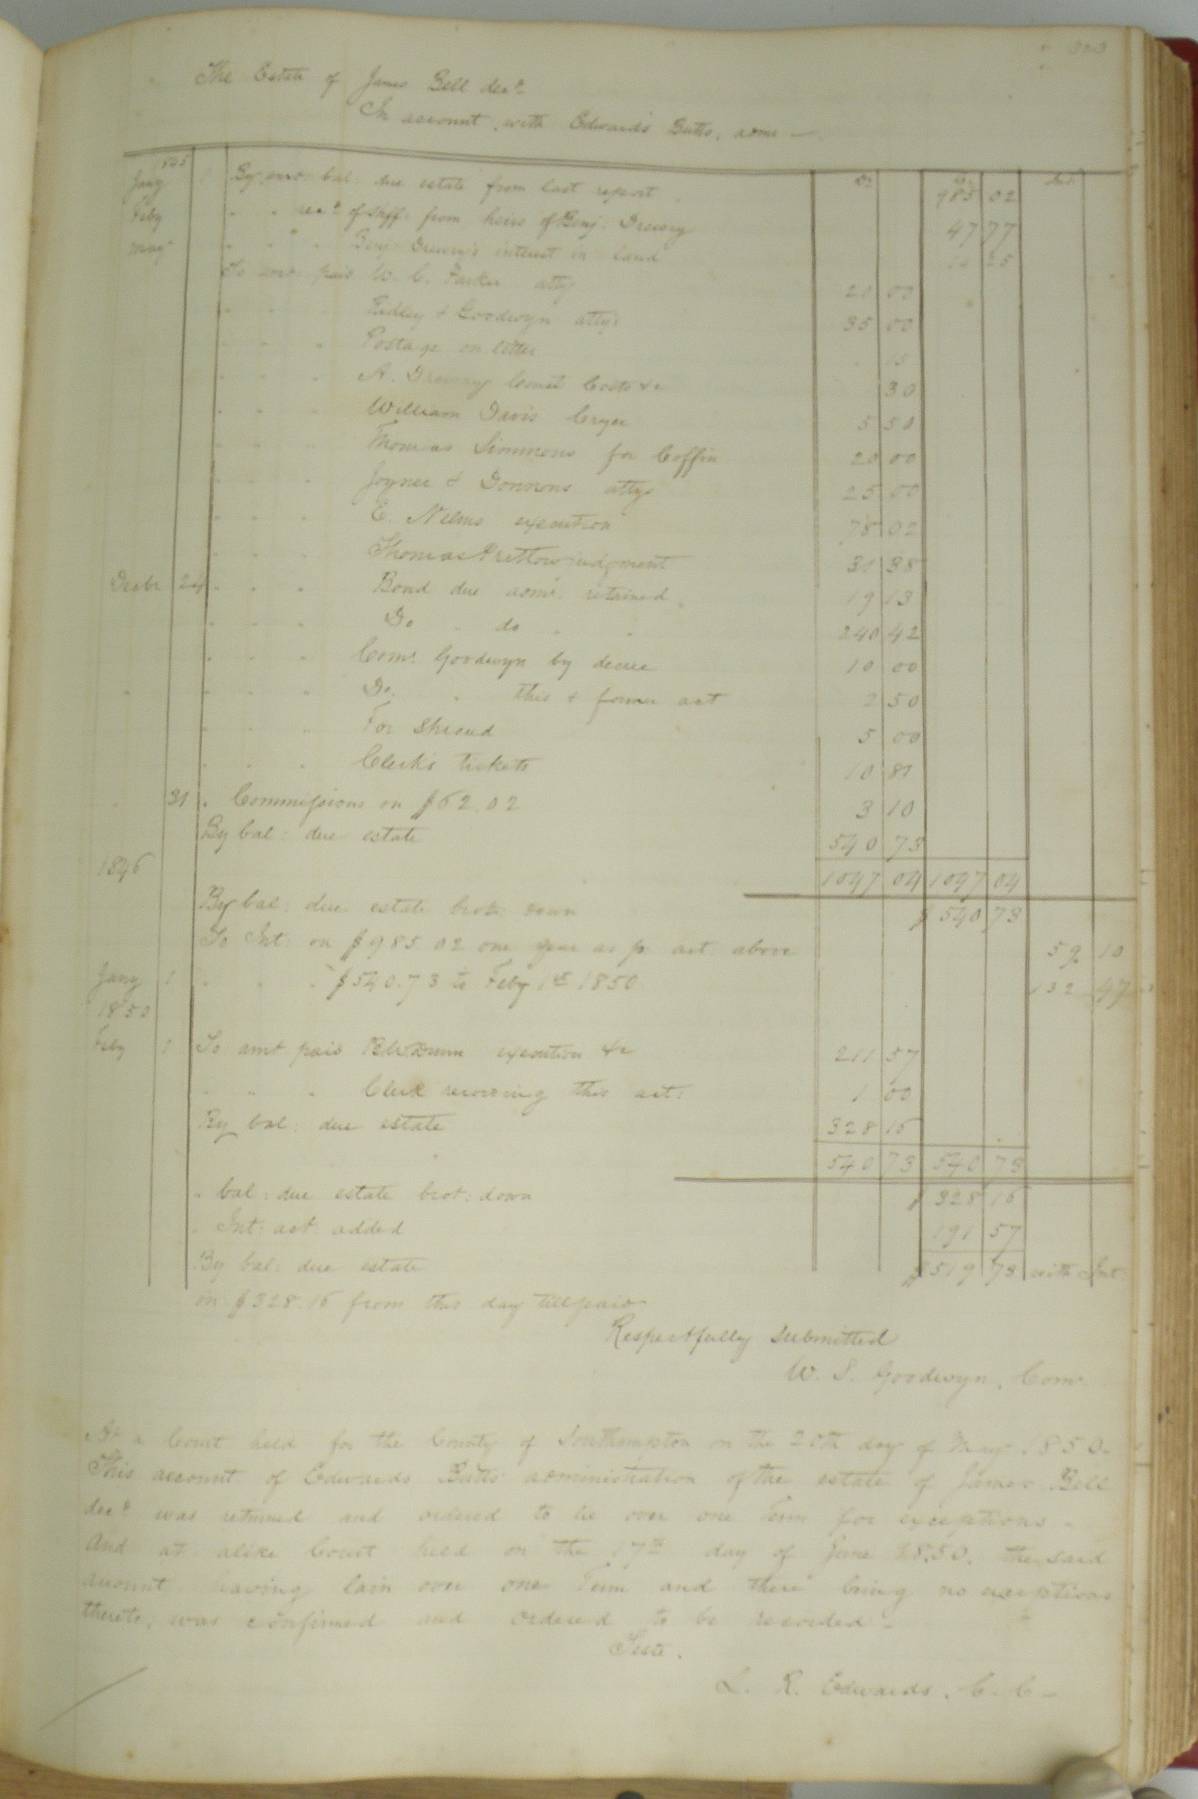 The Estate of James Bell decd
In account with Edwards Butts, admr —
1845 Dr Cr Int
Jany 1 By amt bal: due estate from last report 985 02
Feby " " recd of Shff: from heirs of Benj: Drewry 47 77
May " " " Benj Drewry's interest in land 14 25
To amt paid W. C. Parker atty 20 00
" " " Ridley & Goodwyn attys 35 00
" " " Postage on letter 15
" " " A. Drewry Court Costs &c 30
" " " William Davis Cryer 5 50
" " " Thomas Simmons for Coffin 20 00
" " " Joyner & Donnons attys 25 00
" " " E. Nelms execution 78 02
" " " Thomas Pretlow judgment 31 38
Decbr 24 " " " Bond due admr. retained 19 13
" " " Do " do " " 240 42
" " " Comr. Goodwyn by decree 10 00
" " " Do. " this & former act 2 50
" " " For Shroud 5 00
" " " Clerk's tickets 10 81
31 " Commissions on $62.02 3 10
By bal: due estate 540 73
1846 1047 04 1047 04
By bal: due estate brot down $ 540 73
To Int: on $985.02 one year as pr act above 59 10
Jany 1 " " " $540.73 to Feby 1st 1850 132 47
1850
Feby 1 To amt paid Dunn execution &c 211 57
" " " Clerk recording this act: 1 00
By bal: due estate 328 16
540 73 540 73
" bal: due estate brot: down $ 328 16
" Int: act: added 191 57
By bal: due estate $ 519 73 with Int
on $328.16 from this day till paid
Respectfully submitted
W. S. Goodwyn, Comr.
At a Court held for the County of Southampton on the 20th day of May 1850.
This account of Edwards Butts administration of the estate of James Bell
decd was returned and ordered to lie over one Term for exceptions -
And at alike Court held on the 17th day of June 1850. the said
account having lain over one Term and there being no exceptions
thereto, was confirmed and ordered to be recorded -
Teste.
L. R. Edwards, C. C -